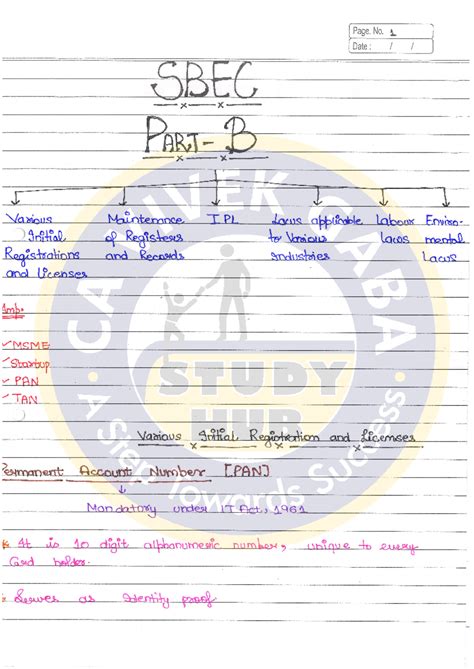 Page. No. 1
Date : / /
SBEC
PART-B
Various Initial Registrations and Licenses
Maintenance of Registers and Records
IPL
Laws applicable to Various Industries
Labour Laws
Enviromental Laws
Imp:
✓MSME
✓Startup
✓PAN
✓TAN
Various Initial Registration and Licenses
Permanent Account Number [PAN]
Mandatory under IT Act, 1961
* It is 10 digit alphanumeric number, unique to every
Card holder.
* Serves as Identity proof
CA VIVEK GABA
STUDY
HUB
A Step Towards Success